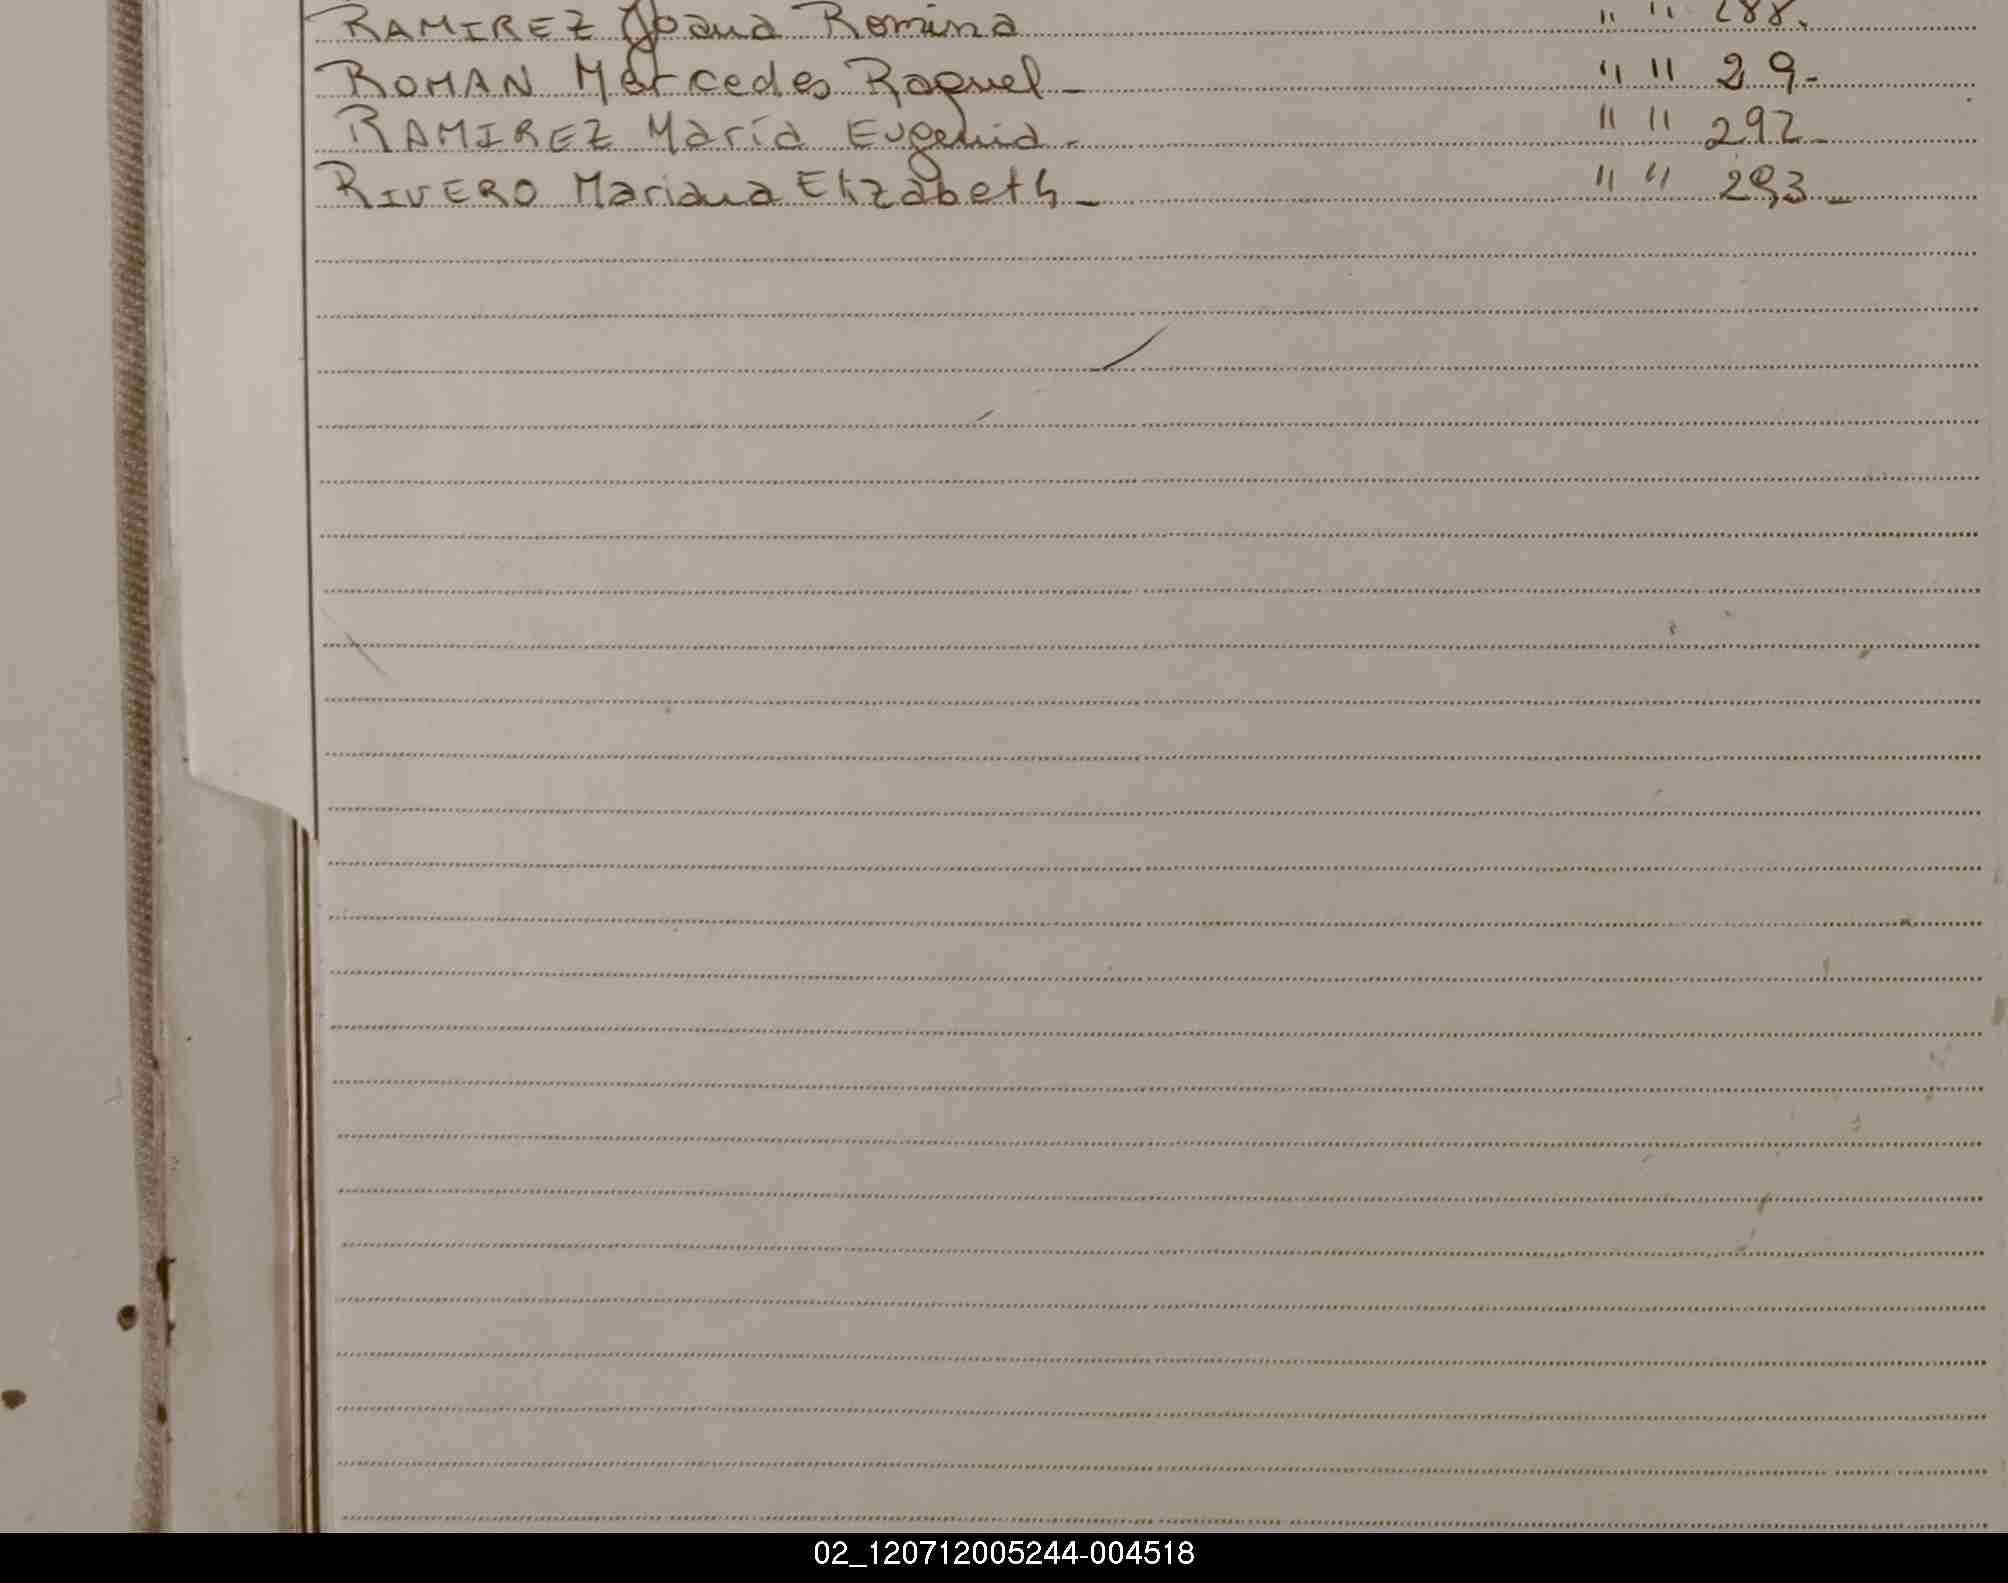 RAMIREZ Joana Romina " " 288.
ROMAN Mercedes Raquel - " " 29-
RAMIREZ María Eugenia - " " 292-
RIVERO Mariana Elizabeth - " " 293-
02_120712005244-004518